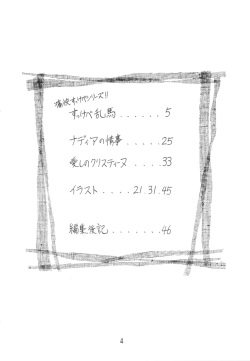 痛快すっけべシリーズ!!
すっけべ乱馬......5
ナディアの情事.....25
愛しのクリスティーヌ....33
イラスト....21.31.45
編集後記.......46
4